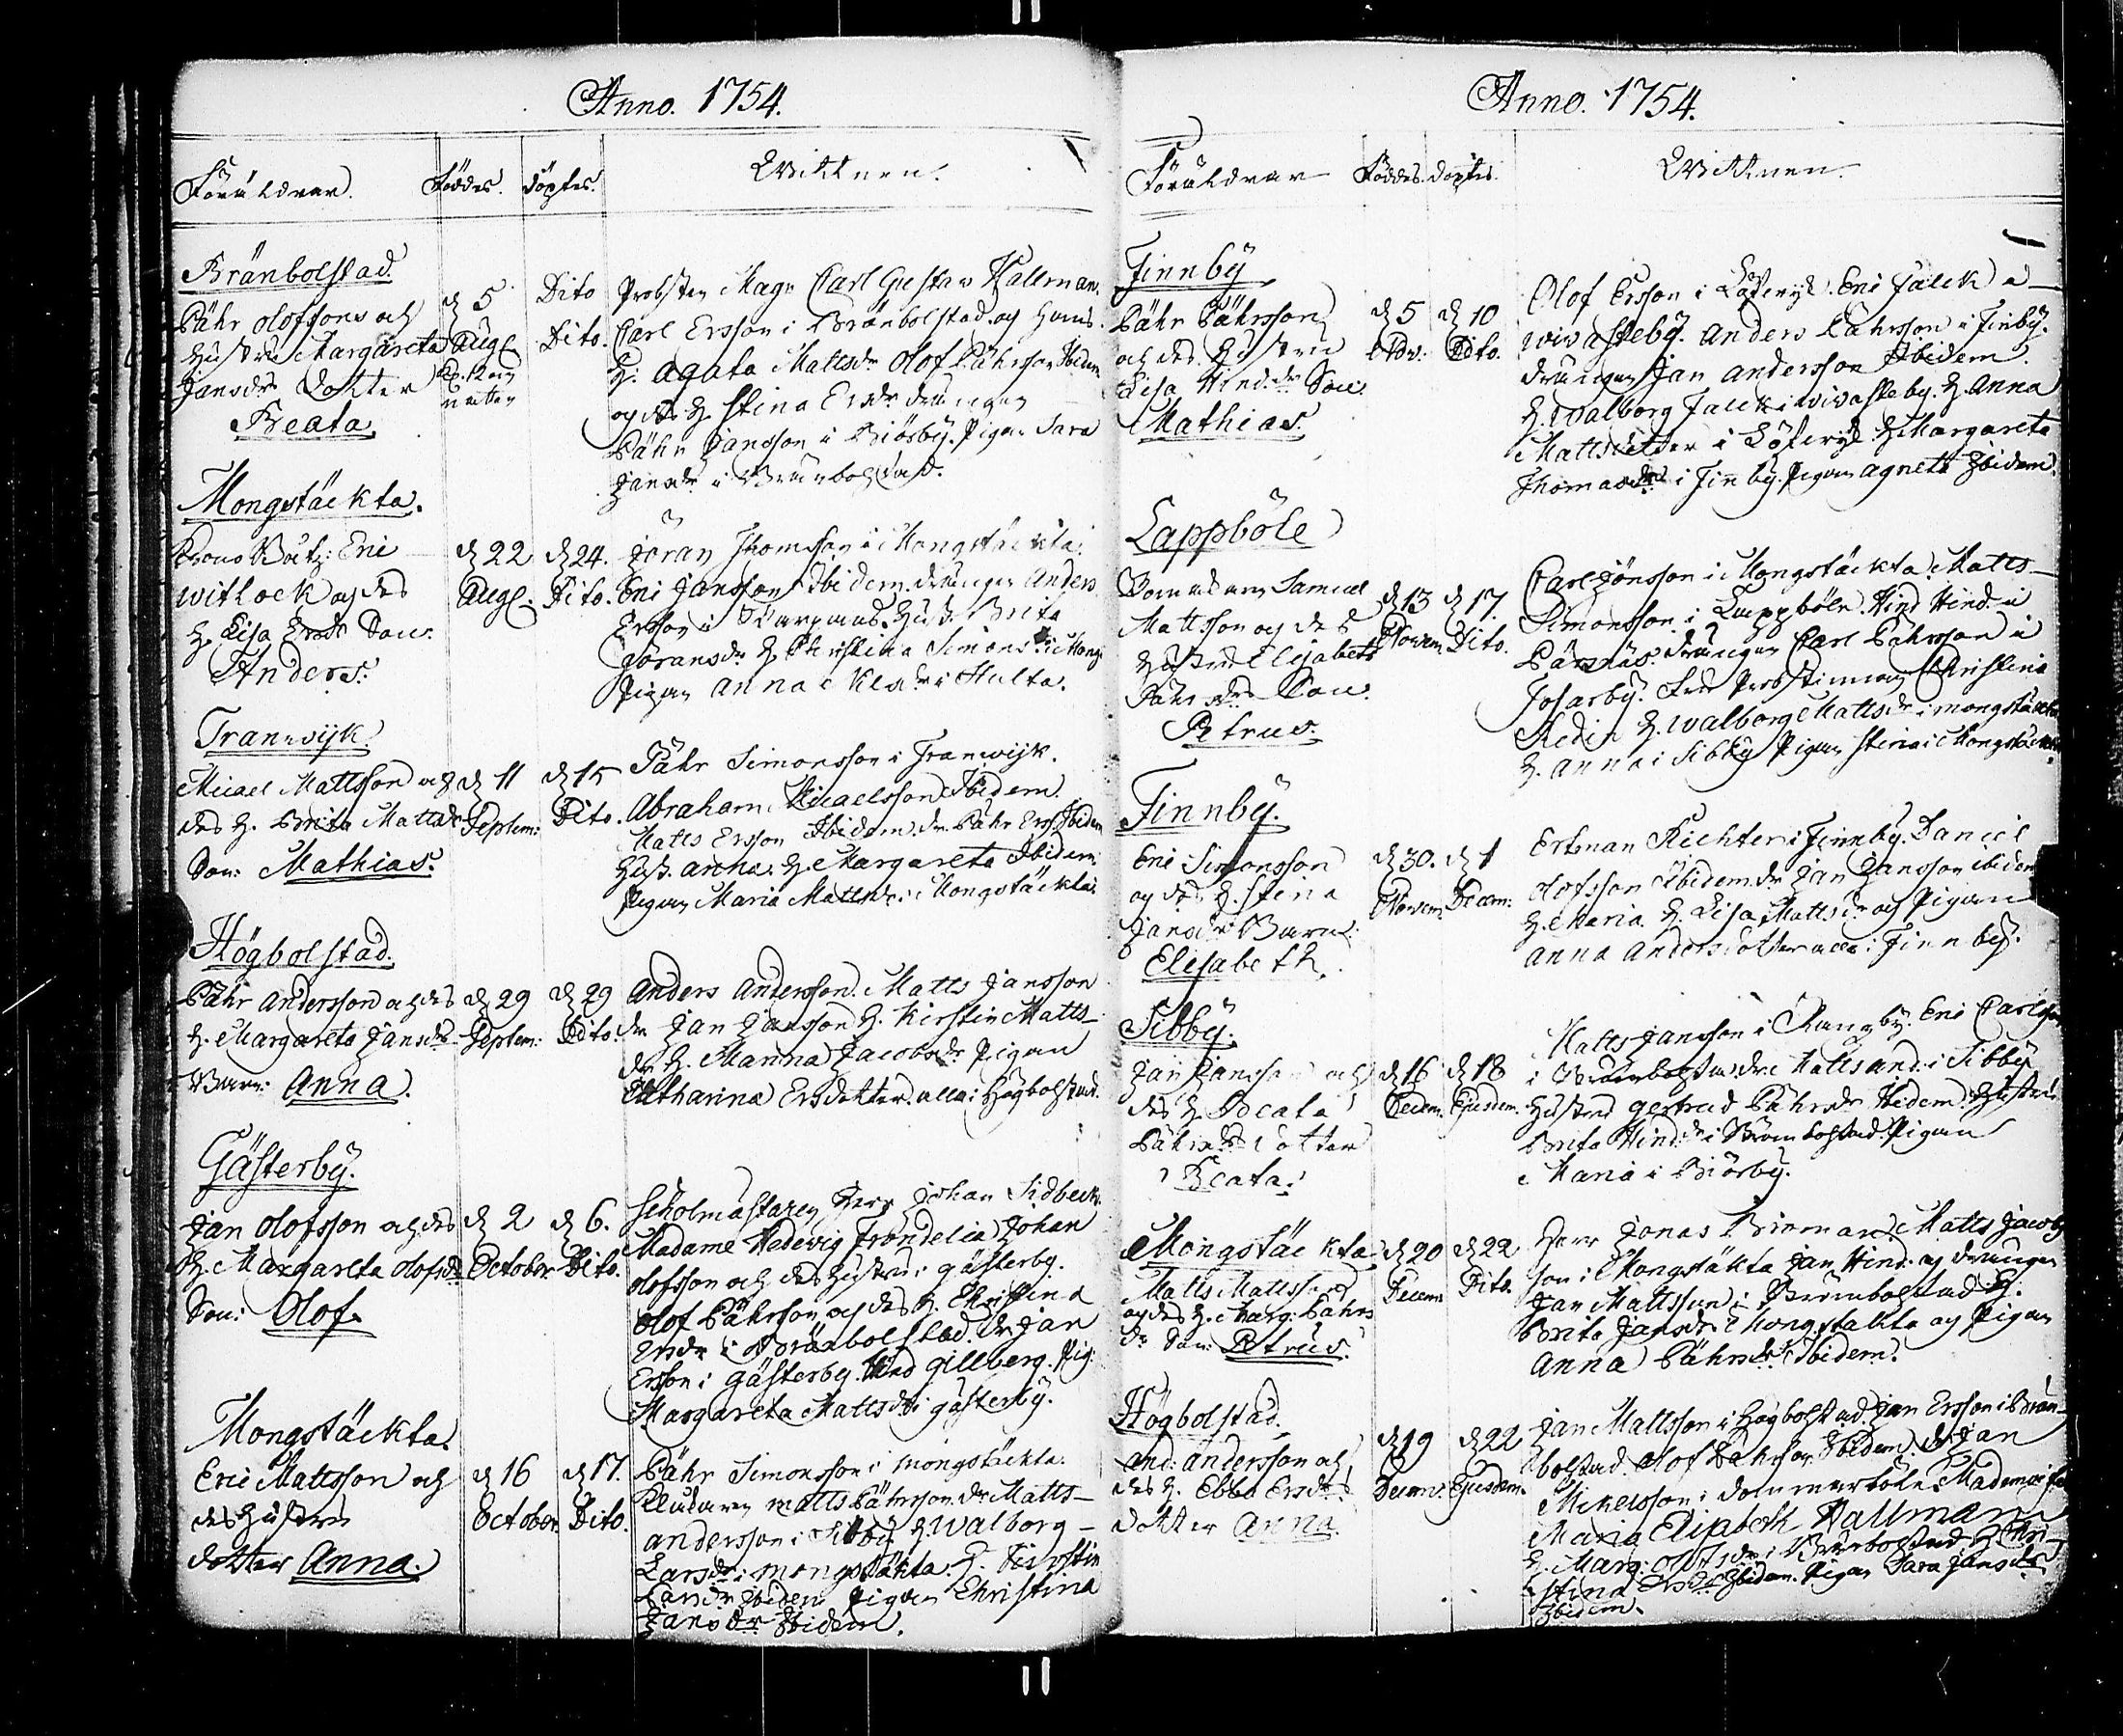 Anno. 1754.
Föräldrar. Föddes. döptes. Wittnen.
Bränbolstad.
Pähr Olofssons och
Hustru Margareta
Jansdr. Dotter
Beata.
d 5
Augl
Dito
Dito.
Probsten Mag. Carl Gustav Hallman.
Carl Ersson i Bränbolstad och hans
H. Agata Mattsdr Olof Pährsson Ibidem
och des H. Stina Ersdr drängen
Pähr Jansson i Biörsby. Pigan Sara
Jansdr i Bränbolstad.
Mongstäckta.
Eric
Witlock och des
H. Lisa Ersdr Son.
Anders.
d 22
Augl.
d 24.
Dito.
Jöran Thomsson i Mongstäckta.
Eric Jansson Ibidem drängen Anders
Ersson i
Jöransdr H. Christina Simonsdr i Mong:
Pigan Anna Nilsdr i Hulta.
Tranwijk.
Micael Mattsson och
des H. Brita Mattsdr
Son: Mathias.
d 11
Septem:
d 15
Dito.
Pähr Simonsson i Tranwijk.
Abraham Micaelsson Ibidem.
Matts Ersson Ibidem. dr. Pähr Erss. Ibidem
Hust. Anna. H. Margareta Ibidem.
Pigan Maria Mattsdr i Mongstäckta.
Högbolstad.
Pähr Andersson och des
H. Margareta Jansdr
Barn: Anna.
d 29
Septem:
d 29
Dito.
Anders Andersson. Matts Jansson
dr Jan Jansson H. Kirstin Matts-
dr H. Manna Jacobsdr Pigan
Catharina Ersdotter. alla i Högbolstad.
Gästerby.
Jan Olofsson och des
H. Margareta Olofsdr
Son: Olof.
d 2
October
d 6.
Dito.
Scholmästaren Herr Johan Sidbeck.
Madame Hedevig Frondelia Johan
Olofsson och des Hustru i Gästerby.
Olof Pährsson och des H. Christina
Ersdr i Bränbolstad. dr Jan
Ersson i Gästerby. Hind Gillberg. Pig:
Margareta Mattsdr i Gästerby.
Mongstäckta.
Eric Mattsson och
des Hustru
dotter Anna.
d 16
October.
d 17.
Dito.
Pähr Simonsson i Mongstäckta.
Matts Pährsson dr Matts-
Andersson i Sibby H Walborg -
Larsdr i Mongstäkta. H.
Larsdr Ibidem Pigan Christina
Jansdr Ibidem.
Anno. 1754.
Föräldrar Föddes. döptes. Wittnen.
Finnby
Pähr Pährsson
och des Hustru
Lisa Hind.dr Son.
Mathias.
d 5
Nov:
d 10
Dito.
Olof Ersson i Löfwijk. Eric Falck a
Wivasteby. Anders Pährsson i Finby.
drängen Jan Andersson Ibidem.
H. Walborg Falck i Wivasteby. H. Anna
Mattsdotter i Löfwijk H Margareta
Thomasdr i Finby. Pigan Agneta Ibidem.
Lappböle
Samuel
Mattsson och des
Hustru Elisabeth
Pährsdr Son.
Petrus.
d 13
Novem
d 17.
Dito.
Carl Jönsson i Mongstäckta. Matts-
Simonsson i Lappböle. Hind Hind. i
Pärsnäs. drängen Carl Pährsson i
Josarby. Fru Probstinnan Christina
Aedin H. Walborg Mattsdr i Mongstäckta
H. Anna i Sibby Pigan Stina i Mongstäckta.
Finnby.
Eric Simonsson
och des H. Stena
Jansdr Barn.
Elisabeth.
d 30.
Novem:
d 1
Decem:
Ertman Richter i Finnby. Daniel
Olofsson Ibidem. dr Jan Jansson ibidem
H. Maria. H. Lisa Mattsdr och Pigan
Anna Andersdotter alla i Finnby.
Sibby.
Jan Jansson och
des H. Beata
Pährsdr dotter
Beata.
d 16
Decem.
d 18
Ejusdem.
Matts Jansson i Rangby. Eric Carlsson
i Bränbolstad dr Matts And. i Sibby
Hustru Gertrud Pährsdr Ibidem Hustru
Brita Hind.dr i Bränbolstad. Pigan
Maria i Biörby.
Mongstäckta
Matts Mattsson
och des H. Marg: Pährs
dr Son: Petrus.
d 20
Decem:
d 22
Dito.
Herr Jonas Matts Jacobs
son i Mongstäkta Jan Hind. och drängen
Jan Mattsson i Bränbolstad H.
Brita Jansdr i Mongstäkta och Pigan
Anna Pährsdr Ibidem.
Högbolstad.
And: Andersson och
des H. Ebba Ersdr
dotter Anna.
d 19
Decem:
d 22
Ejusdem.
Jan Mattsson i Högbolstad. Jan Ersson i Brän-
bolstad. Olof Pährsson Ibidem. dr Jan
Mickelsson i Dommarböle. Mademoiselle
Maria Elisabeth Hallman
H. Marg: Olofsdr i Bränbolstad H Chri-
stina Ersdr Ibidem. Pigan Sara Jansdr
Ibidem.